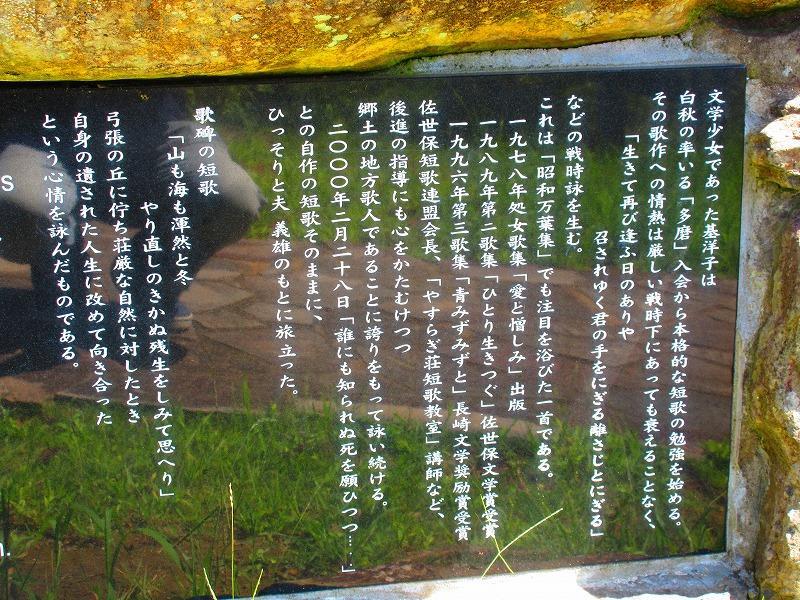 文学少女であった基洋子は
白秋の率いる「多磨」入会から本格的な短歌の勉強を始める。
その歌作への情熱は厳しい戦時下にあっても衰えることなく、
「生きて再び逢ふ日のありや
召されゆく君の手をにぎる離さじとにぎる」
などの戦時詠を生む。
これは「昭和万葉集」でも注目を浴びた一首である。
一九七八年処女歌集「愛と憎しみ」出版
一九八九年第二歌集「ひとり生きつぐ」佐世保文学賞受賞
一九九六年第三歌集「青みずみずと」長崎文学奨励賞受賞
佐世保短歌連盟会長、「やすらぎ荘短歌教室」講師など、
後進の指導にも心をかたむけつつ
郷土の地方歌人であることに誇りをもって詠い続ける。
二〇〇〇年二月二十八日「誰にも知られぬ死を願ひつつ……」
との自作の短歌そのままに、
ひっそりと夫 義雄のもとに旅立った。
歌碑の短歌
「山も海も渾然と冬
やり直しのきかぬ残生をしみて思へり」
弓張の丘に佇ち荘厳な自然に対したとき
自身の遺された人生に改めて向き合った
という心情を詠んだものである。
s